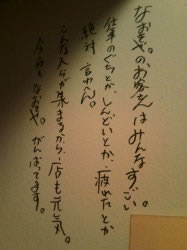 なおきや。のお客さんはみんなすごい。
仕事のぐちとか、しんどいとか、疲れたとか
絶対言わん。
こんな人らが集まるから、店も元気。
今日もなおきや。がんばってます。